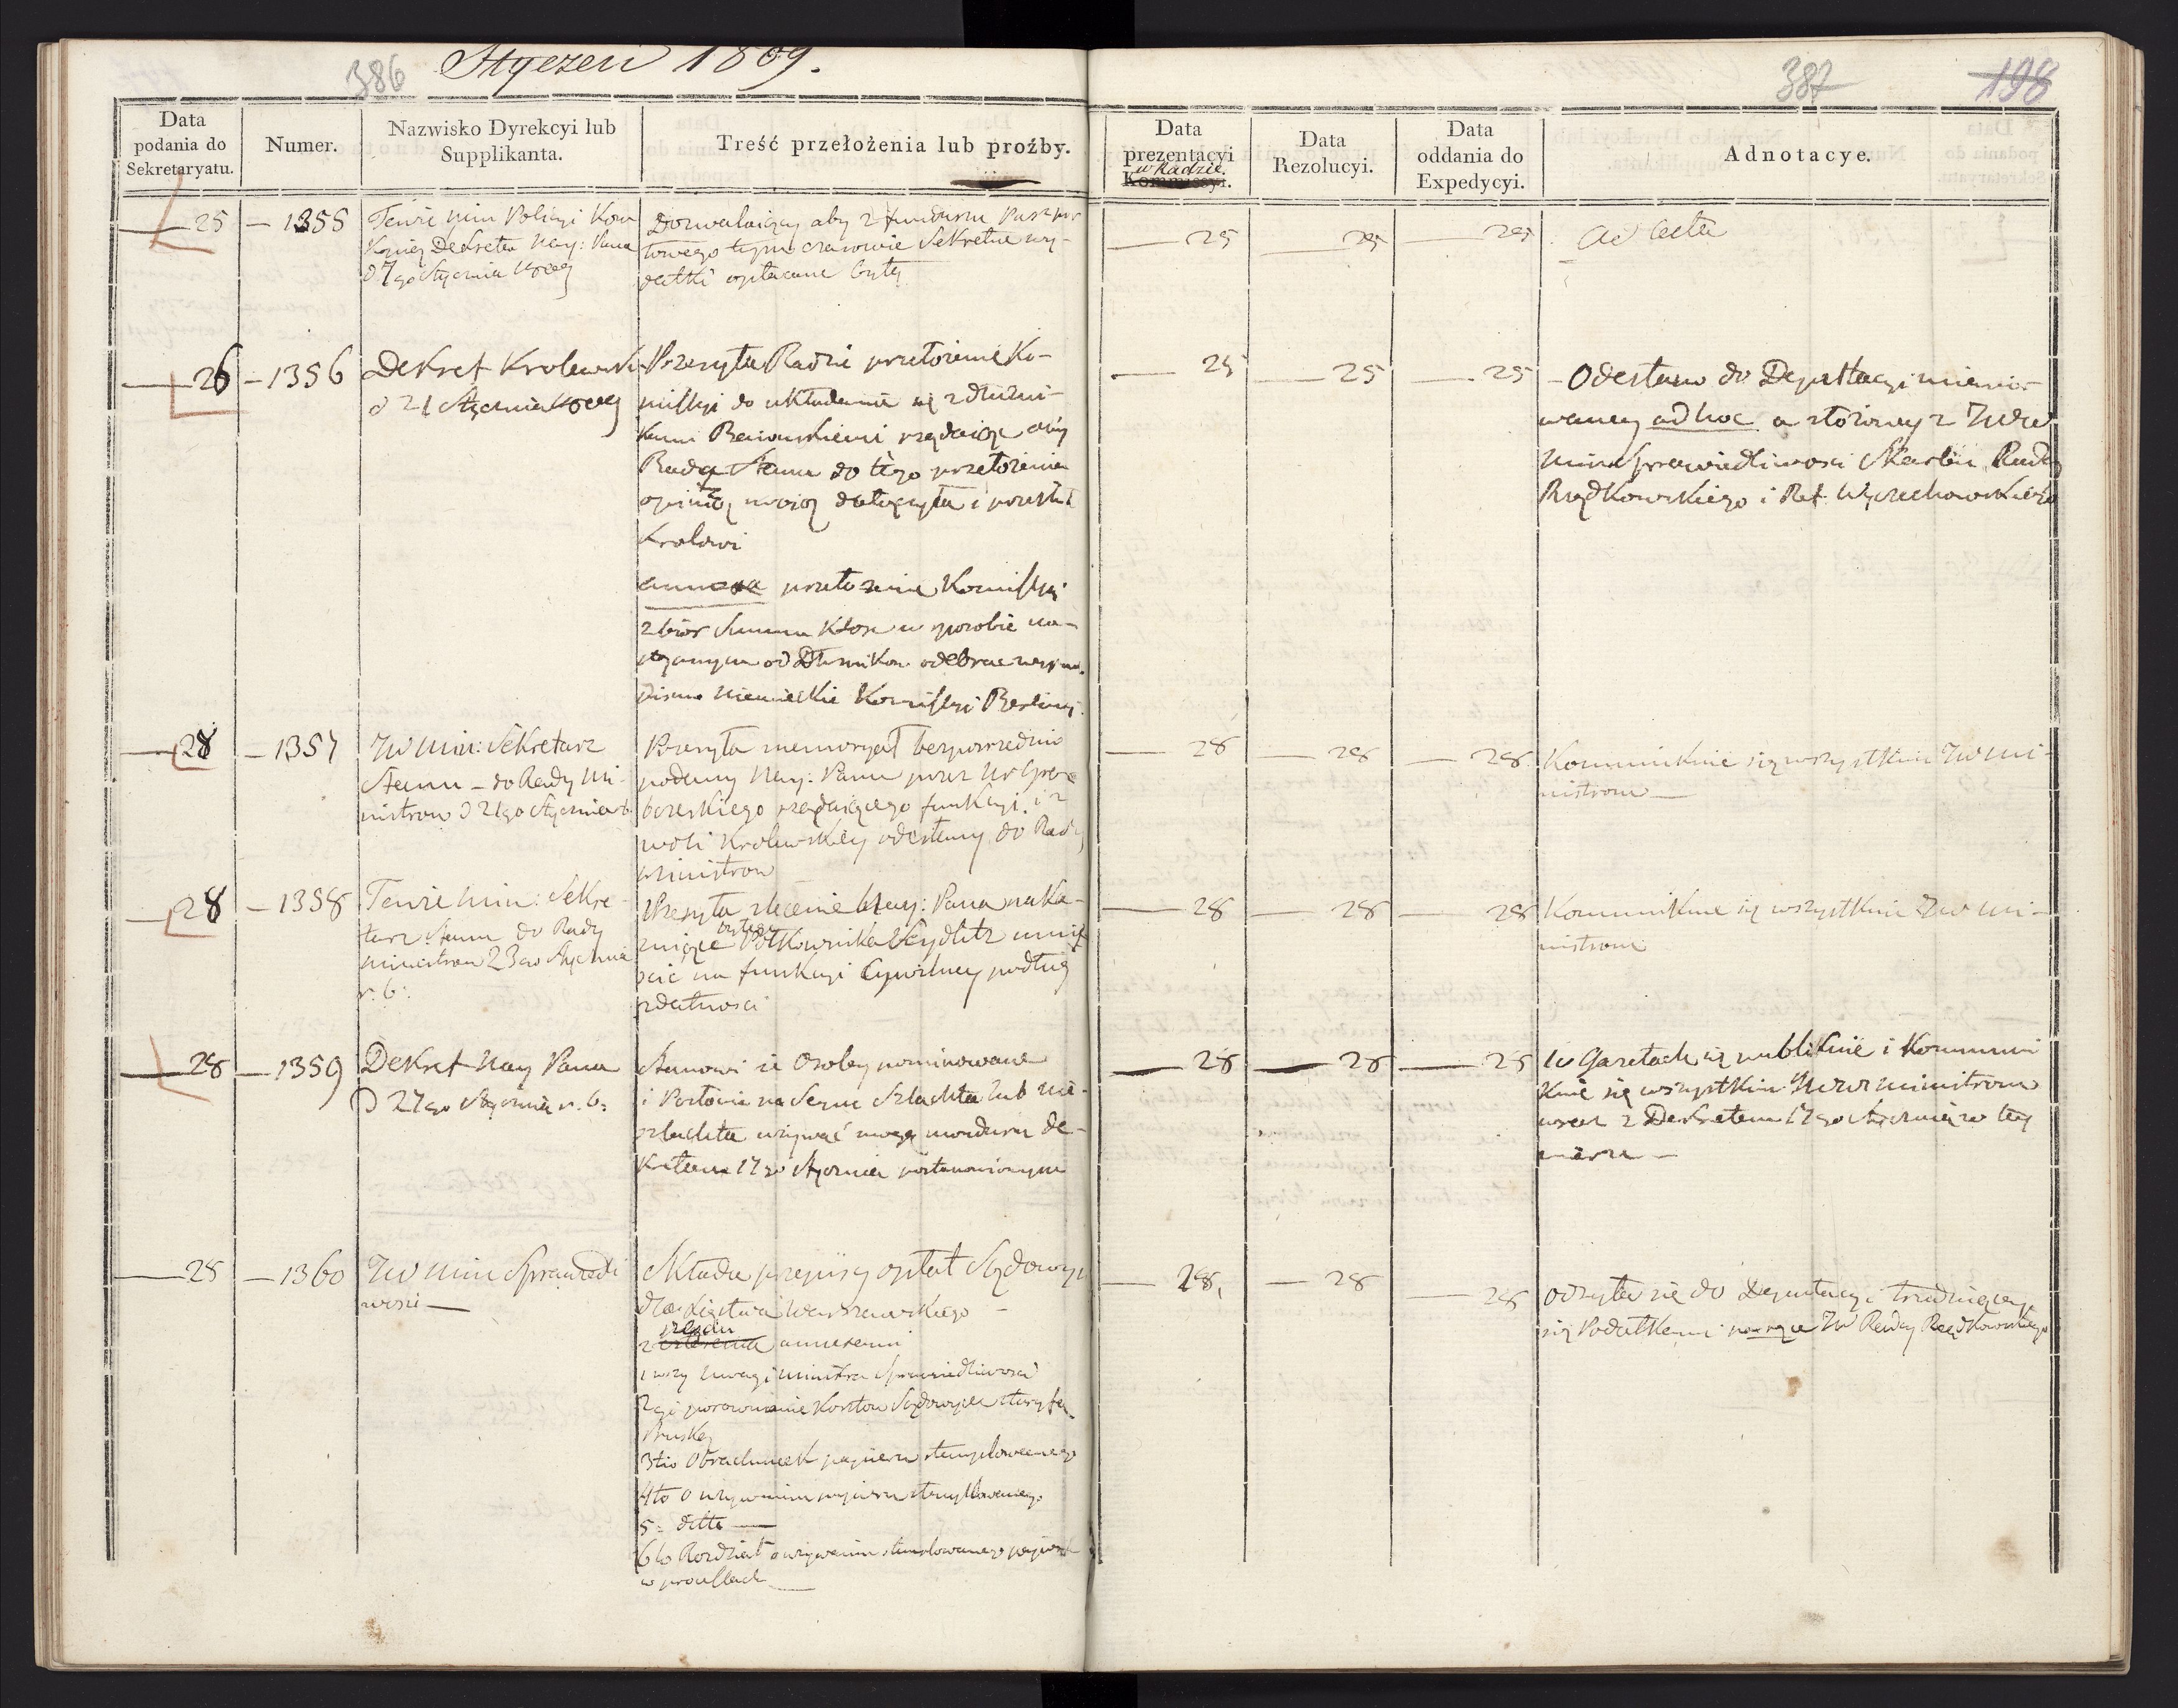 386
Styczeń 1809.
387
198
Data podania do Sekretaryatu.
Numer.
Nazwisko Dyrekcyi lub Supplikanta.
Treść przełożenia lub proźby.
Data prezentacyi w Radzie. Kommissyi.
Data Rezolucyi.
Data oddania do Expedycyi.
Adnotacye.
25 — 1355
Tenże Min Policyi Kom
Kopię Dekretu Nay: Pana
d 7go Stycznia
Dozwalaiący aby z funduszu Paszpor
towego tymczasowie Sekretne wy-
datki opłacane były
25 25 25
ad acta
26 — 1356
Dekret Krolewski
d 21 Stycznia
Przesyła Radzie przełożenie Ko-
missyi do układania się z dłużni-
kami żądaiąc aby
Rada Stanu do tego przełożenia
opinią swoią dołączyła i przesłała
Krolowi
annexa przełożenie Komissyi
zbiór Summ w sposobie na-
od Dłużnikow odebrać
pismo Niemieckie Komissyi Berlinsj.
25 25 25
— Odesłano do Deputacyi miano-
waney ad hoc a złożoney z JW
Min Sprawiedliwosci Skarbu Radcy
Rządkowskiego i Ref. Wyczechowskiego
28 — 1357
JW Min: Sekretarz
Stanu — do Rady Mi-
nistrow d 21go Stycznia r b.
Przesyła memoryał bezposrzednio
podany Nay: Panu przez Ur
żądaiącego funkcyi i z
woli Krolewskiey odesłany do Rady
Ministrow
28 28 28.
Kommunikuie się wszystkim JW Mi-
nistrom —
28 — 1358
Tenże Min: Sekre-
tarz Stanu do Rady
Ministrow 23go Stycznia
r. b:
Przesyła zlecenie Nay: Pana naka-
zuiące byłego Półkownika Seydlitz umie
scić na funkcyi Cywilney podług
zdatnosci
28 28 28
Kommunikuie się wszystkim JW Mi-
nistrom
28 — 1359
Dekret Nay Pana
d 27go Stycznia r. b:
Stanowi że Osoby nominowane
i Posłowie na Seym Szlachta lub nie-
szlachta używać mogą munduru de-
kretem 17go Stycznia postanowionym
28 28 28
W Gazetach się publikuie i Kommuni
kuie się wszystkim JWW Ministrom
wraz z Dekretem 17go Stycznia w tey
mierze —
28 — 1360
JW Min Sprawiedli
wosci —
Składa przepisy opłat Sądowych
dla Xięstwa Warszawskiego —
z annexami
1wszy Uwagi Ministra Sprawiedliwosci
2gi porownanie Kosztow Sądowych
Pruskiey
3tio Obrachunek papieru stemplowanego
4to o używaniu papieru stemplowanego
5: ditto —
6to Rozdział o używaniu stemplowanego papieru
w processach —
28, 28 28
odsyła się do Deputacyi trudniącey
się Podatkami na ręce JW Radcy Rządkowskiego